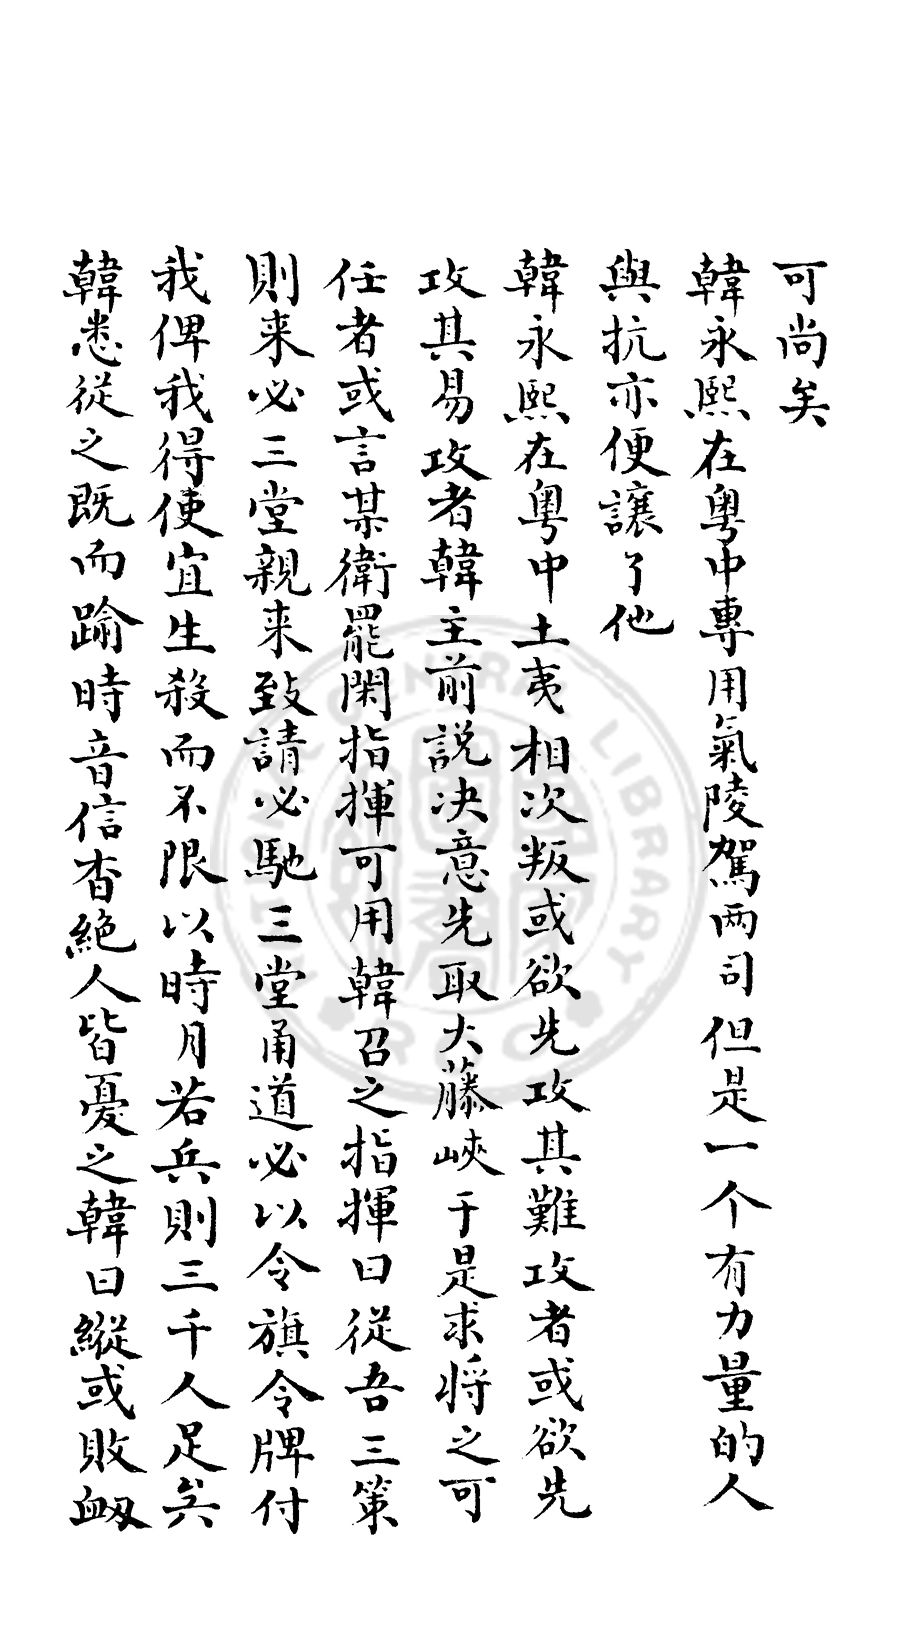 可尚矣
韓永熙在粵中專用氣陵駕兩司但是一个有力量的人
與抗亦便讓了他
韓永熙在粵中土夷相次叛或欲先攻其難攻者或欲先
攻其易攻者韓主前説决意先取大藤峽于是求將之可
任者或言某衛罷閑指揮可用韓召之指揮曰從吾三策
則来必三堂親来致請必馳三堂甬道必以令旗令牌付
我俾我得使宜生殺而不限以時月若兵則三千人足矣
韓悉從之既而踰時音信杳絶人皆憂之韓曰縱或敗衂
NATIONAL CENTRAL LIBRARY
R.O.C